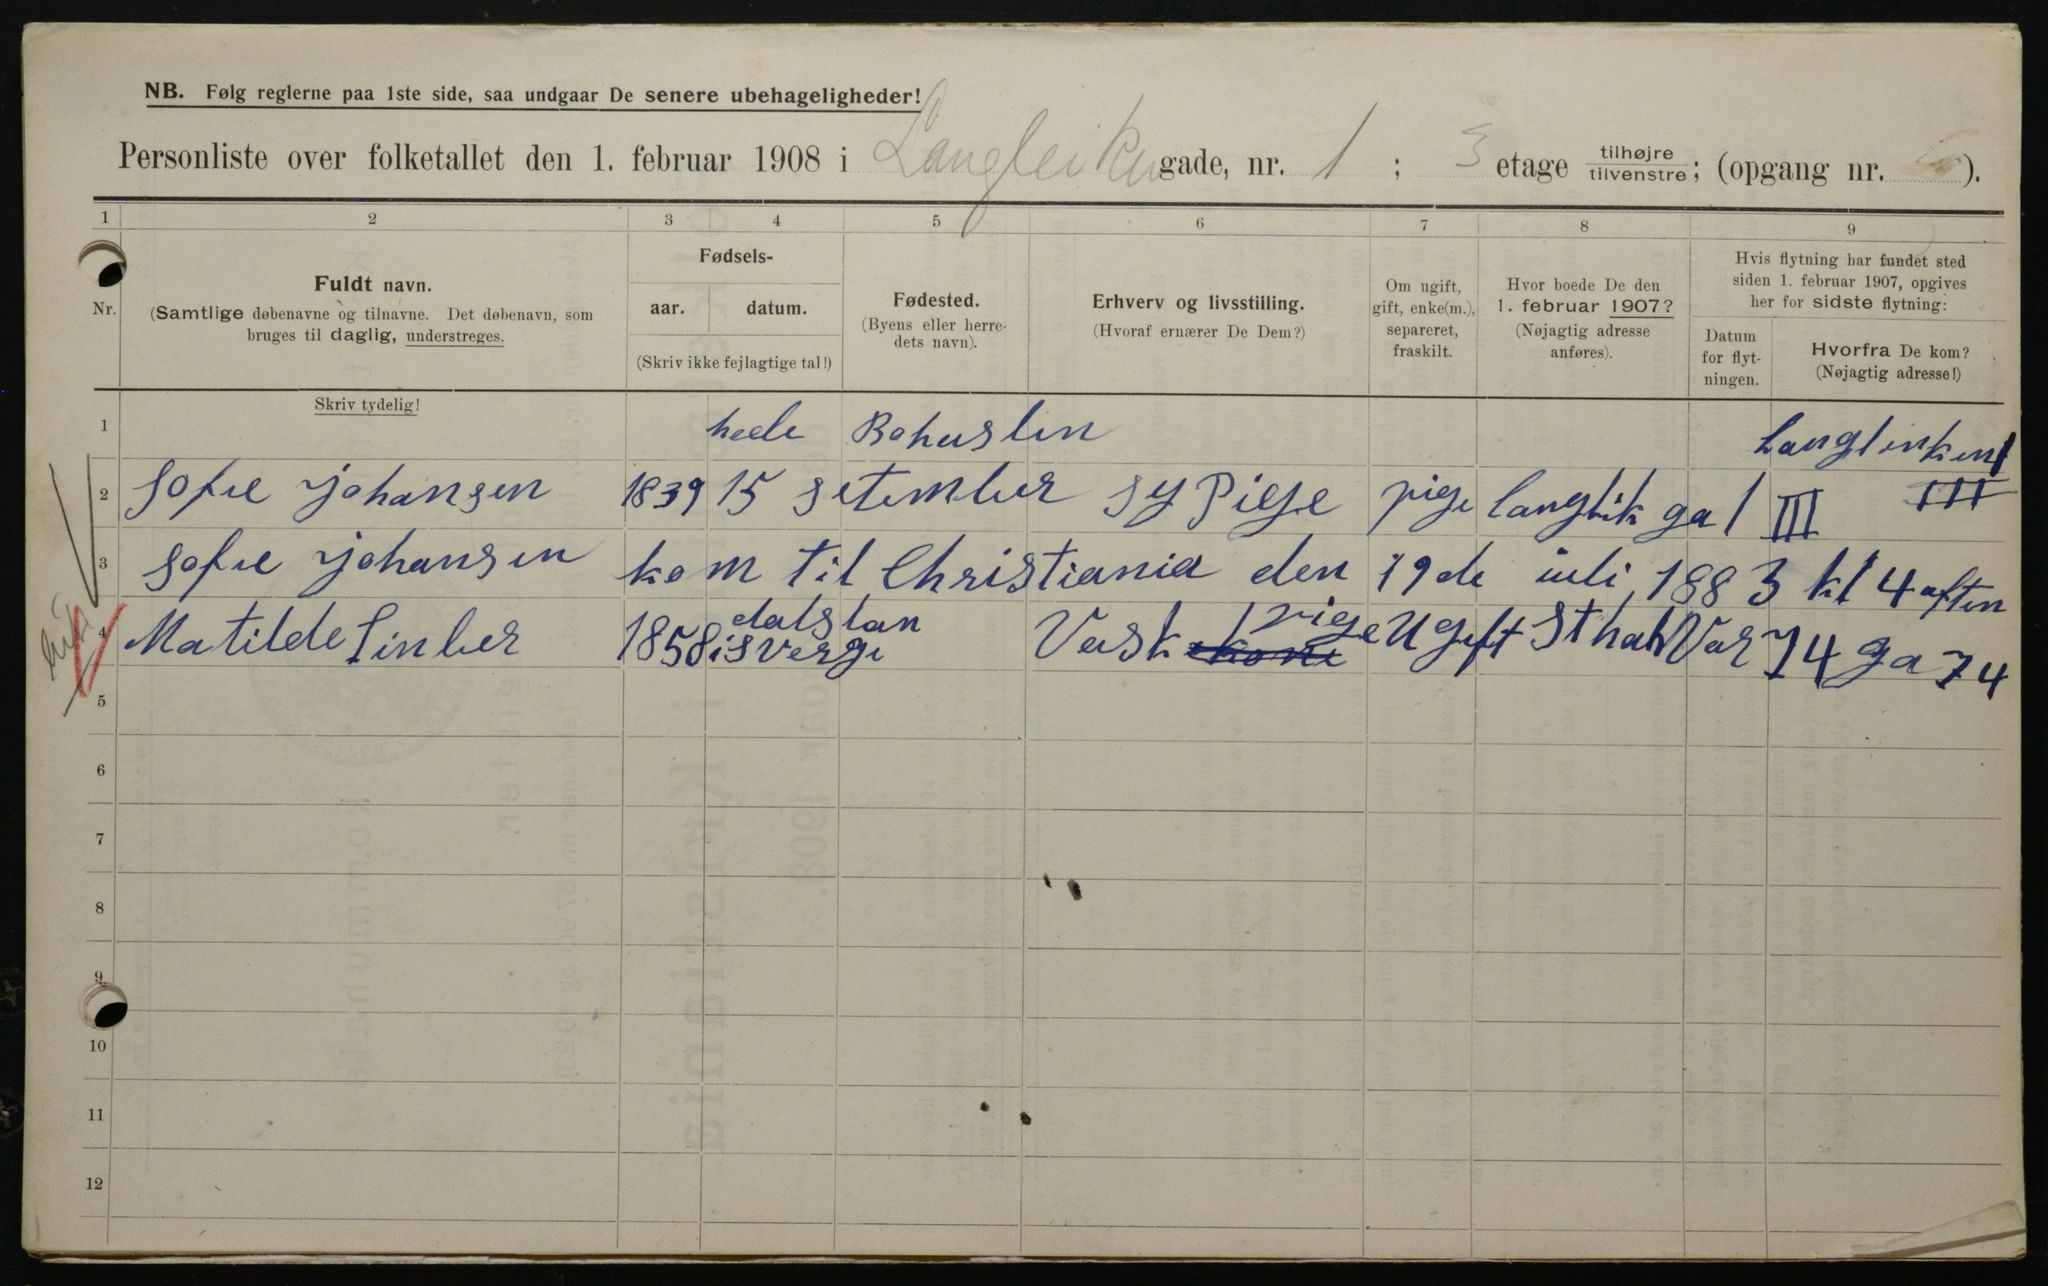 NB. Følg reglerne paa 1ste side, saa undgaar De senere ubehageligheder!
Personliste over folketallet den 1. februar 1908 i Langleiken gade, nr. 1 ; 3 etage tilhøjre/tilvenstre; (opgang nr. ).
1 2 3 4 5 6 7 8 9
Nr.
Fuldt navn.
(Samtlige døbenavne og tilnavne. Det døbenavn, som
bruges til daglig, understreges.
Fødsels-
aar. datum.
(Skriv ikke fejlagtige tal!)
Fødested.
(Byens eller herre-
dets navn).
Erhverv og livsstilling.
(Hvoraf ernærer De Dem?)
Om ugift,
gift, enke(m.),
separeret,
fraskilt.
Hvor boede De den
1. februar 1907?
(Nøjagtig adresse
anføres).
Hvis flytning har fundet sted
siden 1. februar 1907, opgives
her for sidste flytning:
Datum
for flyt-
ningen.
Hvorfra De kom?
(Nøjagtig adresse!)
Skriv tydelig!
1 heele Bohuslen Langlinken 1
2 Sofie Johansen 1839 15 setember sy Piege pige langlik ga 1 III III
3 Sofie Johansen kom til Christiania den 19 de iuli 1883 kl 4 aften
dalslan pige
4 Matilde Linber 1858 i sverge Vask kone Ugift St hal Var 74 ga 74
5
6
7
8
9
10
11
12